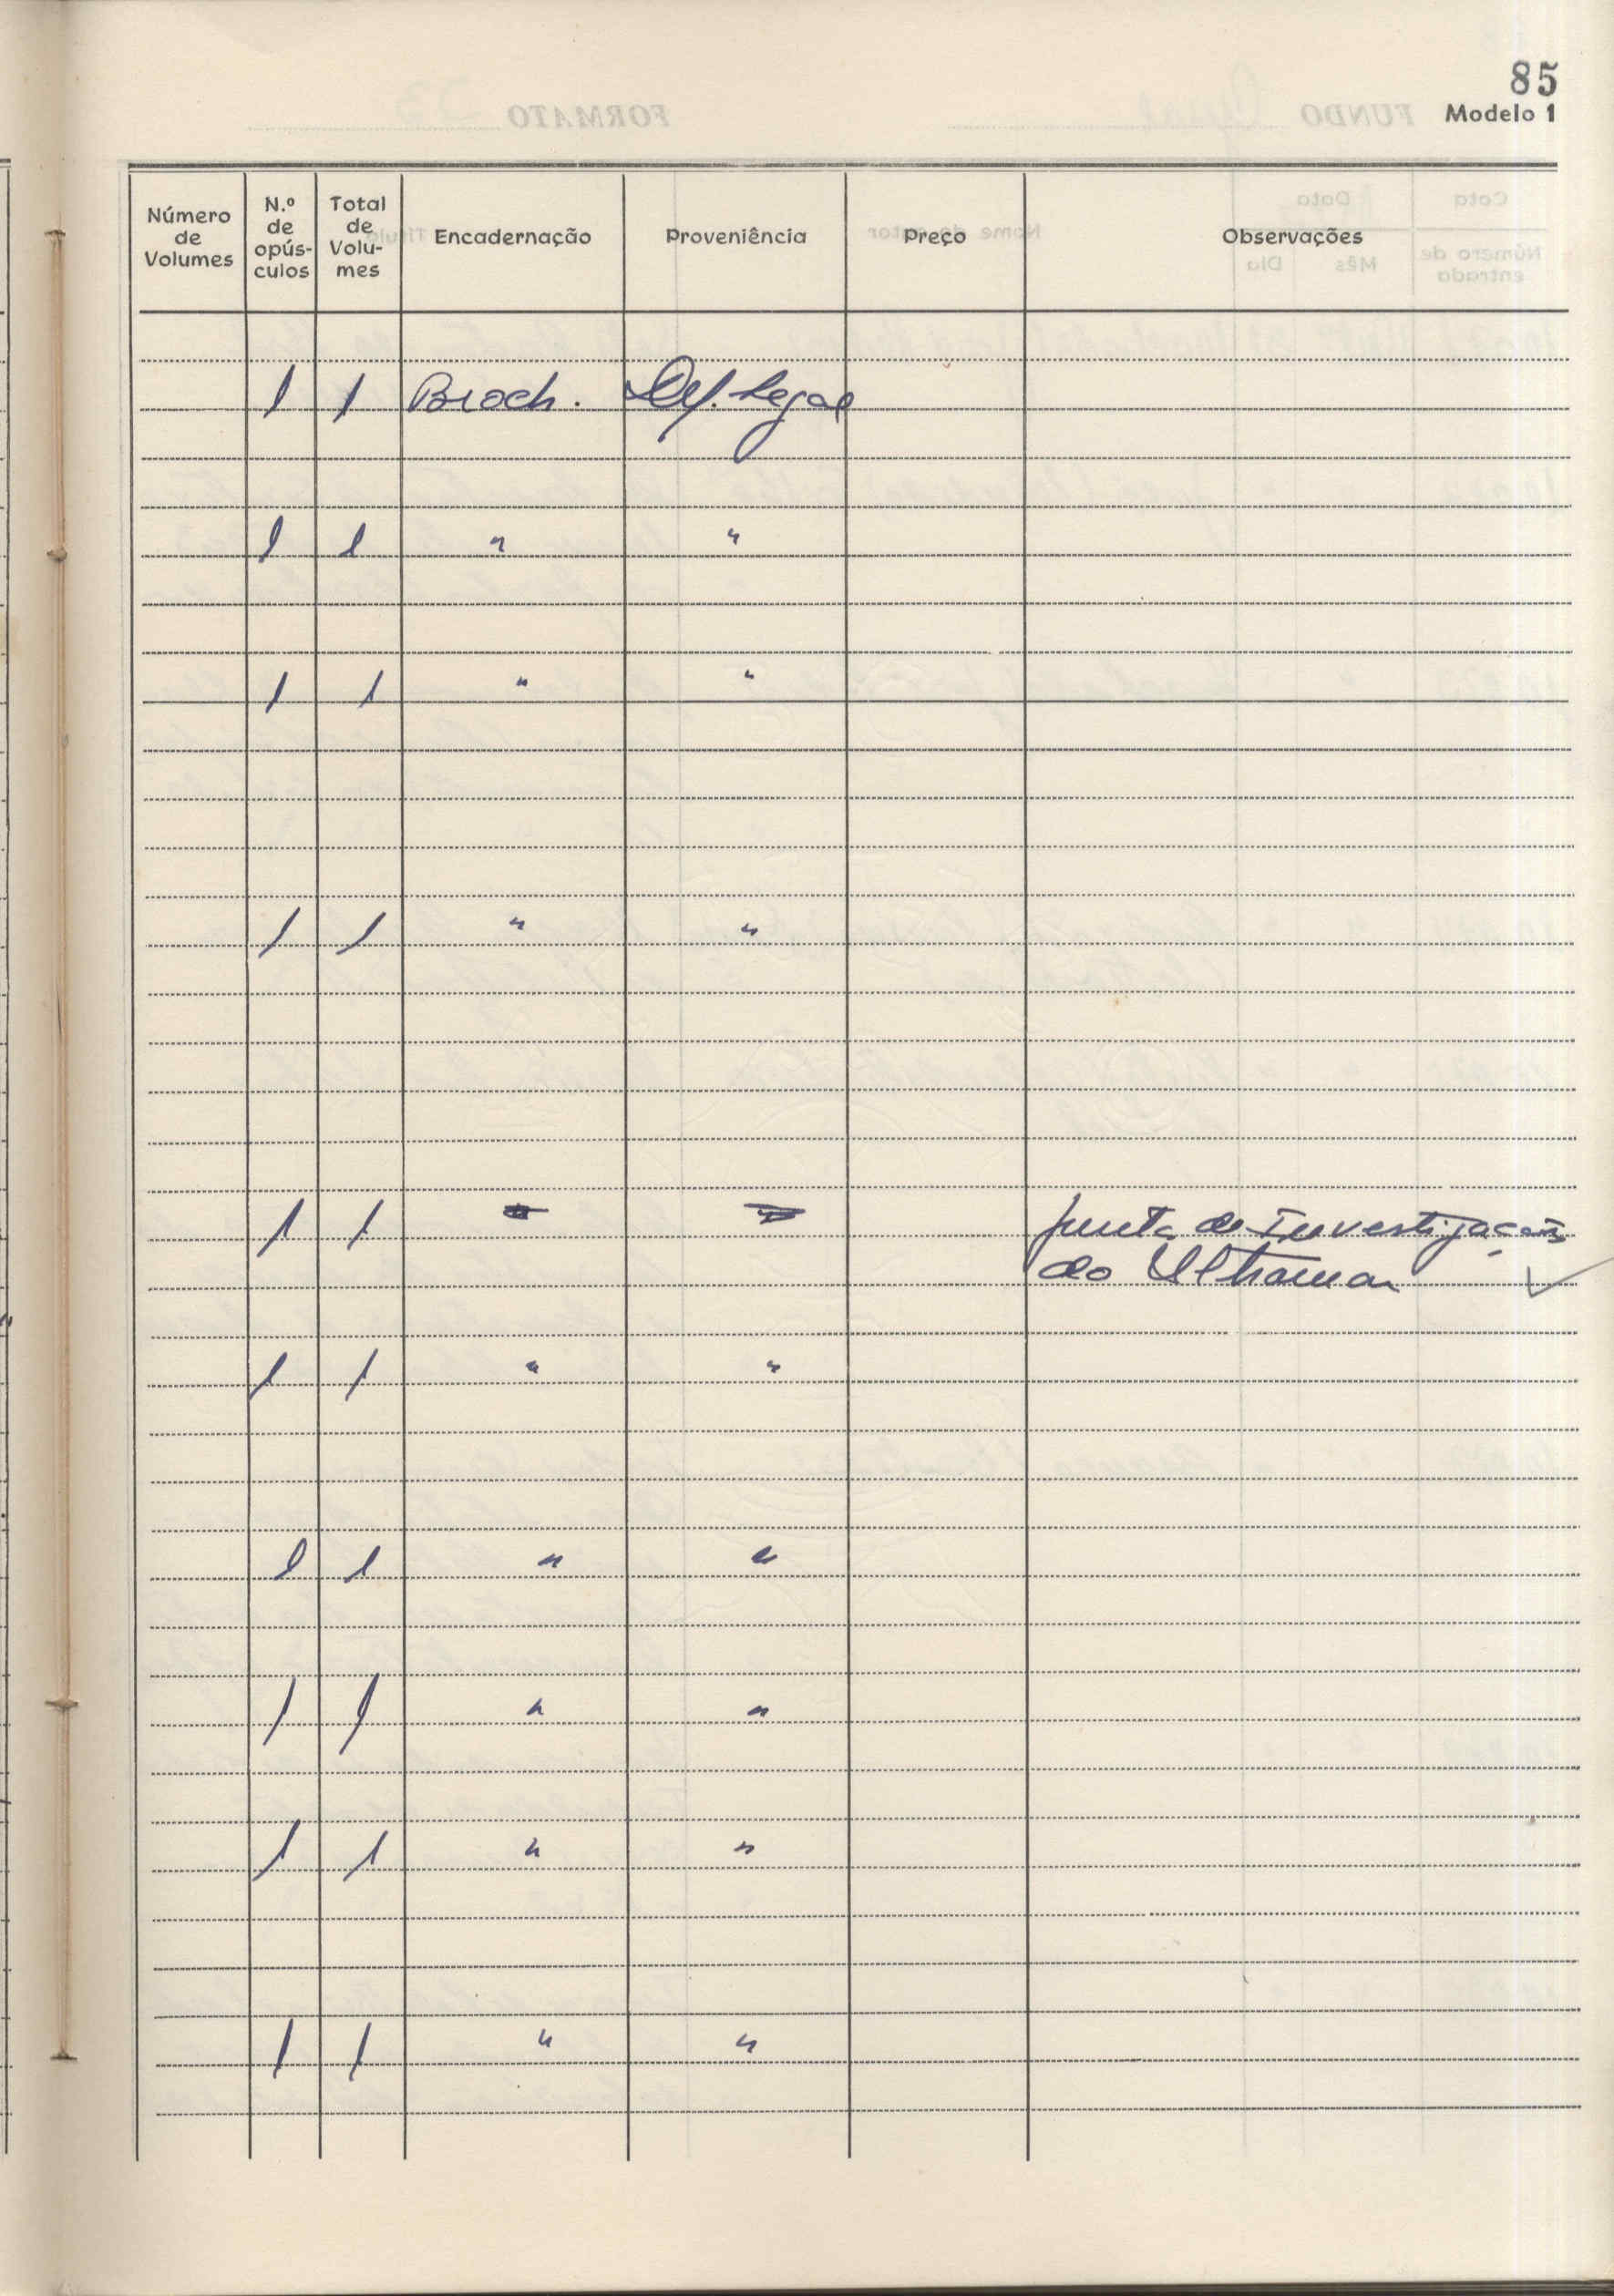 85
Modelo 1
Número de Volumes | N.º de opús-culos | Total de Volu-mes | Encadernação | Proveniência | Preço | Observações
1 1 Broch. Dep. Legal
1 1 " "
1 1 " "
1 1 " "
1 1 Junta de Investigações
do Ultramar ✓
1 1 " "
1 1 " "
1 1 " "
1 1 " "
1 1 " "